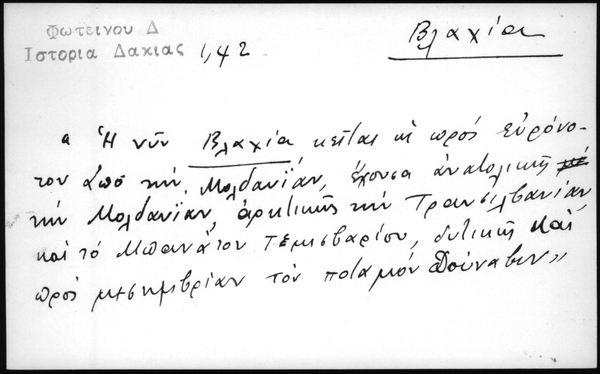 Φωτεινου Δ
Ιστορια Δακιας 1,42
Βλαχία
« Ἡ νῦν Βλαχία κεῖται κὶ πρός εὐρόνο-
τον ἀπό τήν Μολδαυΐαν, ἔχουσα ἀνατολικῆς
τήν Μολδαυΐαν, ἀρκτικῆς τήν Τρανσιλβανίαν
καί τό Μπανάτον Τεμισβαρίου, δυτικῆς καί
πρός μεσημβρίαν τόν ποταμόν Δούναβιν»